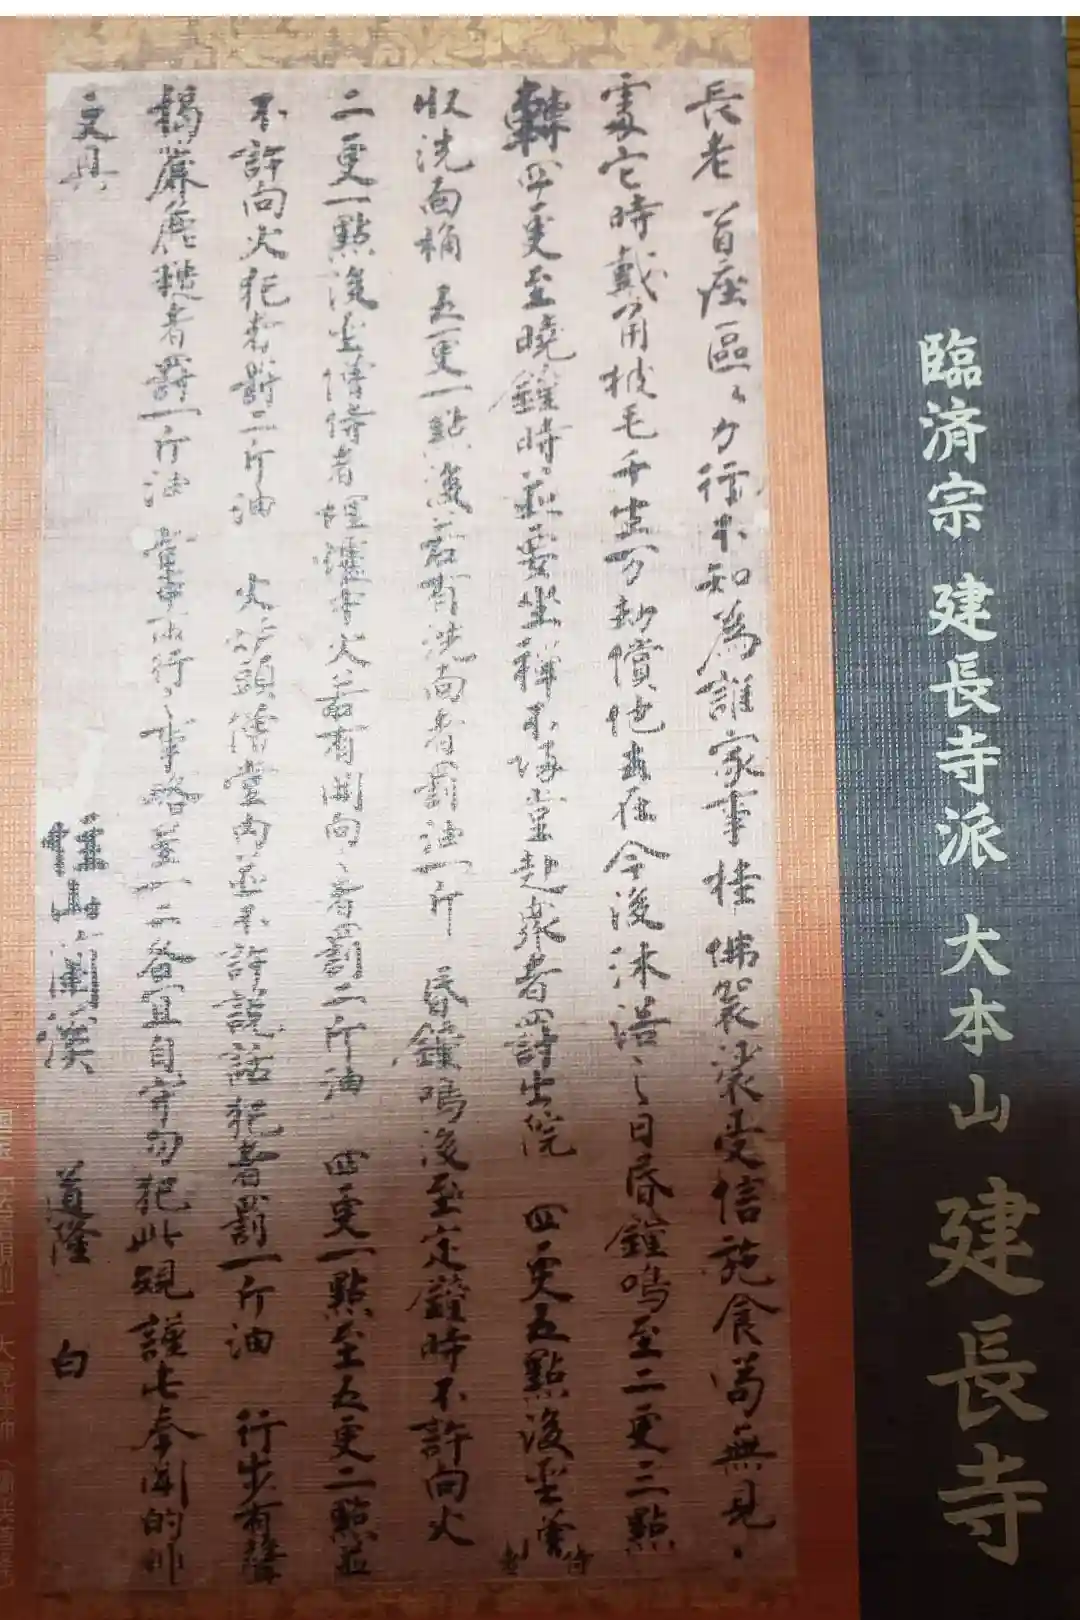 臨済宗 建長寺派 大本山 建長寺
長老首座區〻力行不知為誰家事搭佛袈裟受信施食苟無見〻
處它時戴角披毛千生万劫償他去在今後沐浴之日昏鐘鳴至二更三點
轉四更至曉鐘時並要坐禪不歸堂赴衆者罰出院 四更五點後聖僧侍者
收洗面桶 五更一點後若有洗面者罰油一斤 昏鐘鳴後至定鐘時不許向火
二更一點後聖僧侍者埋爐中火若有開向〻者罰二斤油 四更一點至五更二點並
不許向火犯者罰二斤油 火炉頭僧堂内並不許説話犯者罰一斤油 行步有聲
揭簾麁糙者罰一斤油 堂中所行〻事略呈一二各宜自守勿犯此規謹此奉聞的非
文具
住山蘭溪 道隆 白